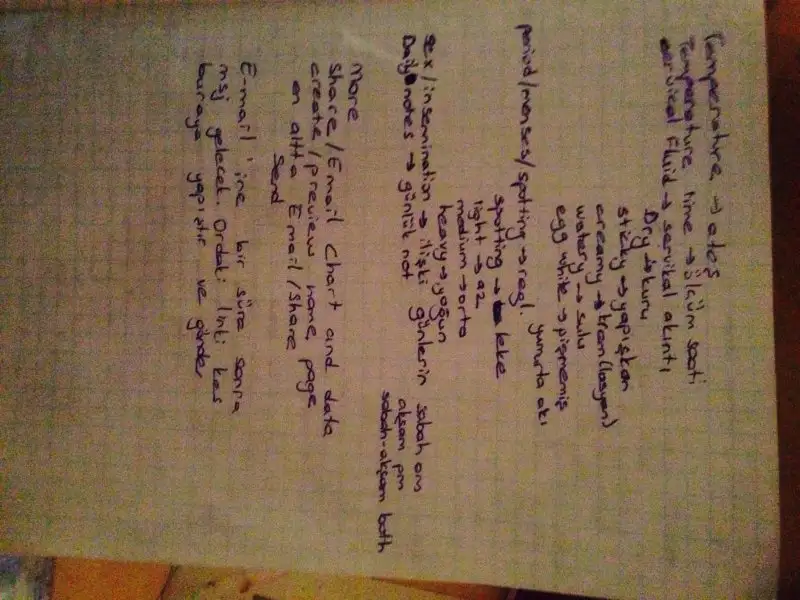 Temperature → ateş
Temperature time → ölçüm saati
servikal Fluid → servikal akıntı
Dry → kuru
sticky → yapışkan
creamy → krem (losyon)
watery → sulu
egg white → pişmemiş yumurta akı
period/menses/spotting → regl.
spotting → leke
light → az
medium → orta
heavy → yoğun
sex/insemination → ilişki günlerin sabah am
akşam pm
sabah-akşam both
Daily notes → günlük not
More
Share/Email Chart and data
create/preview home page
en altta Email/Share
Send
E-mail'ine bir süre sonra
msj gelecek. Ordaki linki kes
buraya yapıştır ve gönder